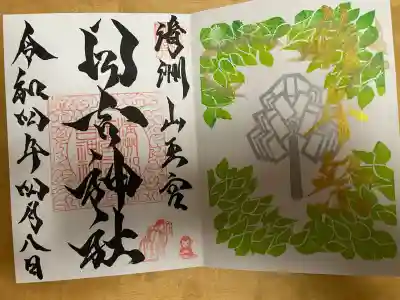 清洲山王宮
日吉神社
令和四年四月八日